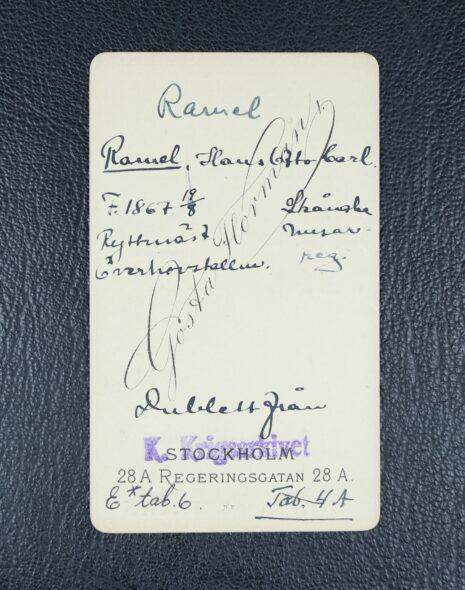 Ramel
Ramel, Hans Otto Carl.
F. 1867 19/8 Skånska
Ryttmäst husar-
Överhovstallm. reg.
Gösta Florman
Dublett från
K. Krigsarkivet
STOCKHOLM
28 A REGERINGSGATAN 28 A.
E* tab. 6. Tab. 4 A